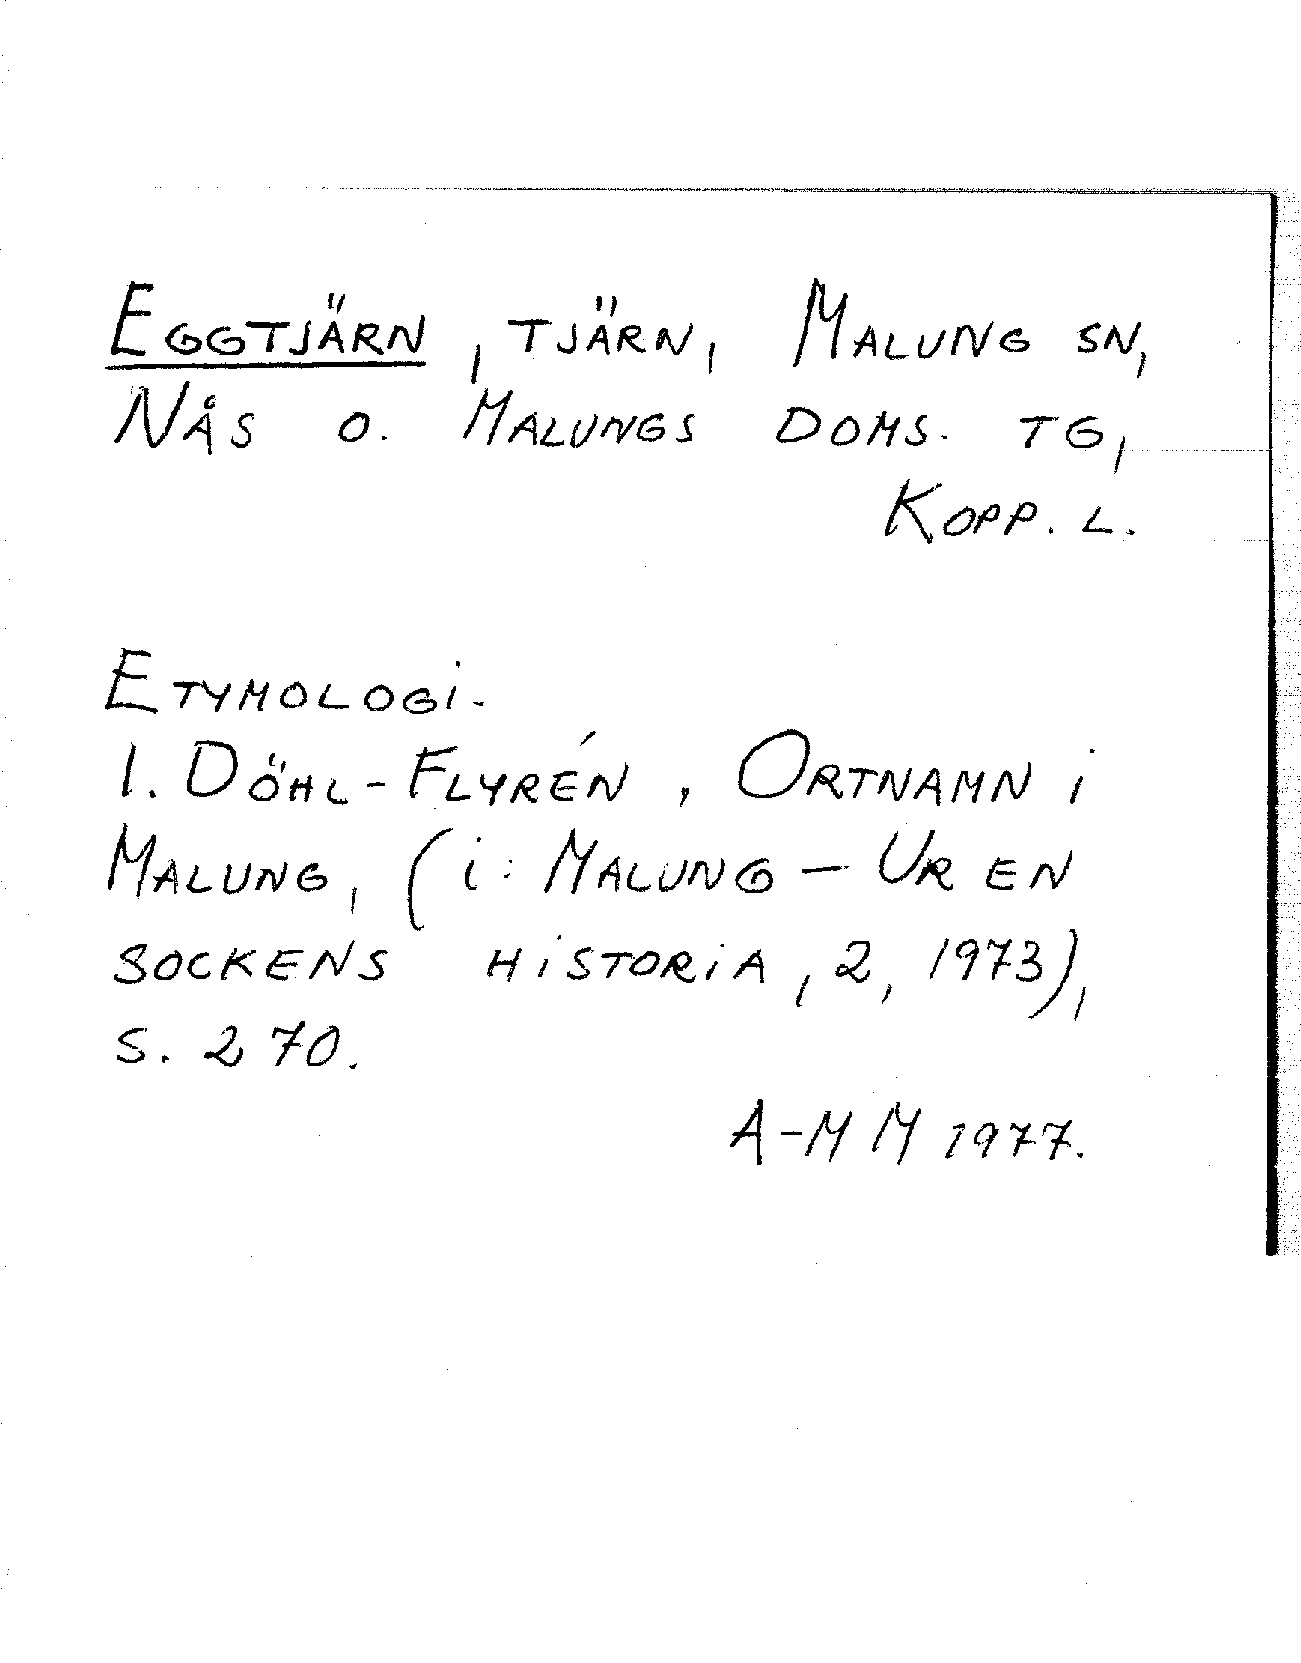 Eggtjärn, tjärn, Malung sn,
Nås o. Malungs doms. tg,
Kopp. l.
Etymologi.
I. Döhl-Flyrén, Ortnamn i
Malung, (i: Malung – Ur en
sockens historia, 2, 1973),
s. 270.
A-M M 1977.